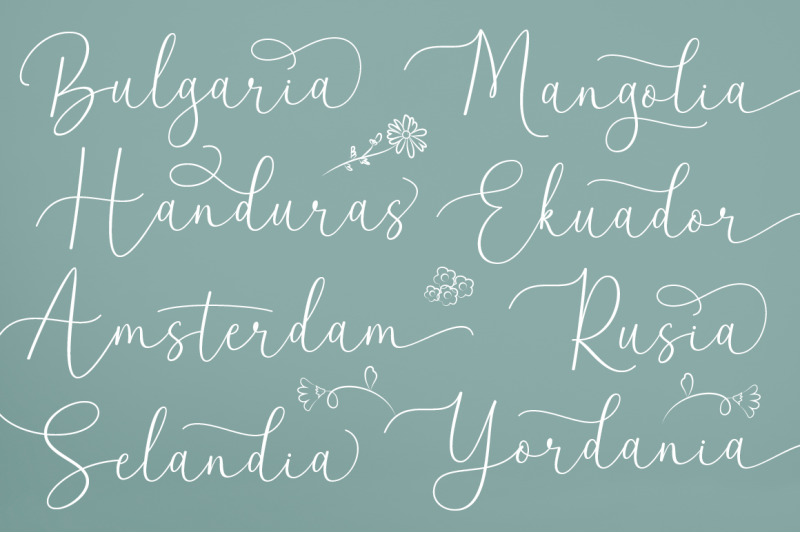 Bulgaria Mangolia
Handuras Ekuador
Amsterdam Rusia
Selandia Yordania